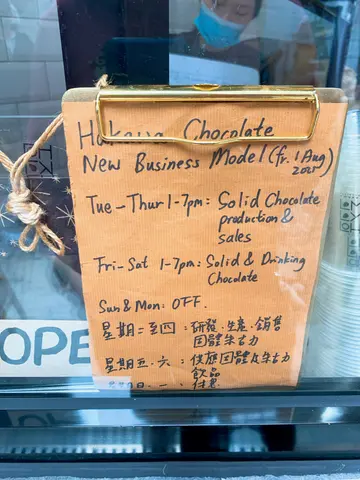 Hakawa Chocolate
New Business Model (fr. 1 Aug
2021)
Tue-Thur 1-7pm: Solid Chocolate
production &
sales
Fri-Sat 1-7pm: Solid & Drinking
Chocolate
Sun & Mon: OFF.
星期二至四：研發·生產·銷售
固體朱古力
星期五·六：供應固體及朱古力
飲品
OPE